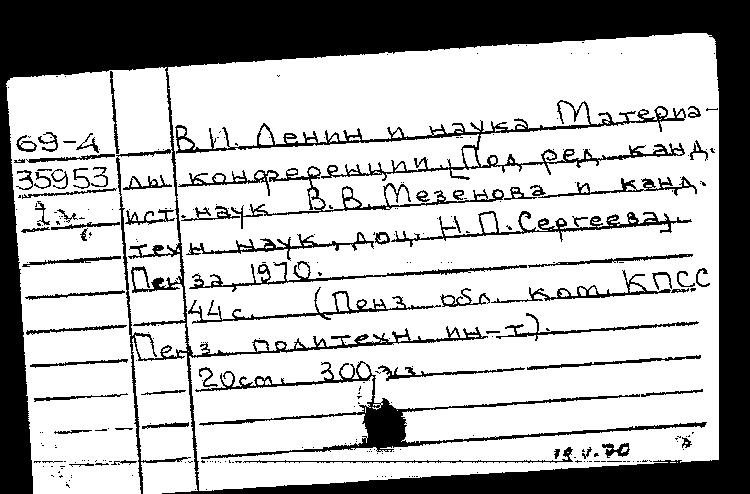 69-4
35953
В.И. Ленин и наука. Материа-
лы конференции. [Под ред. канд.
ист. наук В.В. Мезенова и канд.
техн. наук, доц. Н.П. Сергеева].
Пенза, 1970.
44 с. (Пенз. обл. ком. КПСС
Пенз. политехн. ин-т).
20 см. 300 экз.
19.V.70